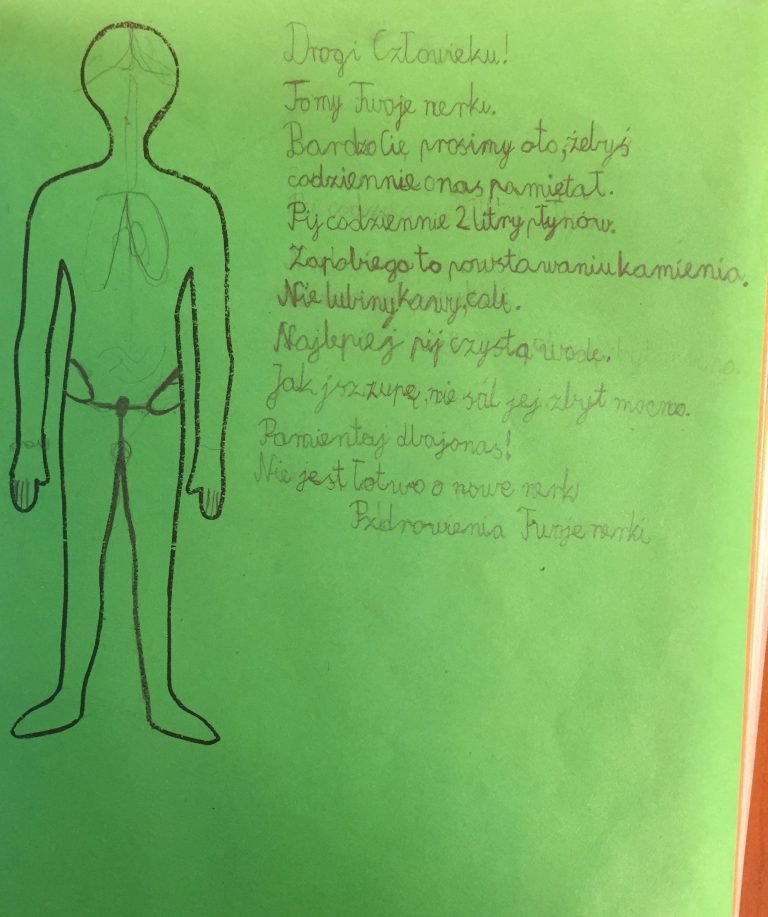 Drogi Człowieku!
To my Twoje nerki.
Bardzo Cię prosimy oto, żebyś
codziennie o nas pamiętał.
Pij codziennie 2 litry płynów.
Zapobiega to powstawaniu kamienia.
Nie lubimy kawy, coli.
Najlepiej pij czystą wodę.
Jak jsz zupę, nie sól jej zbyt mocno.
Pamientaj dbaj o nas!
Nie jest łotwo o nowe nerki
Pzdrowienia Twoje nerki